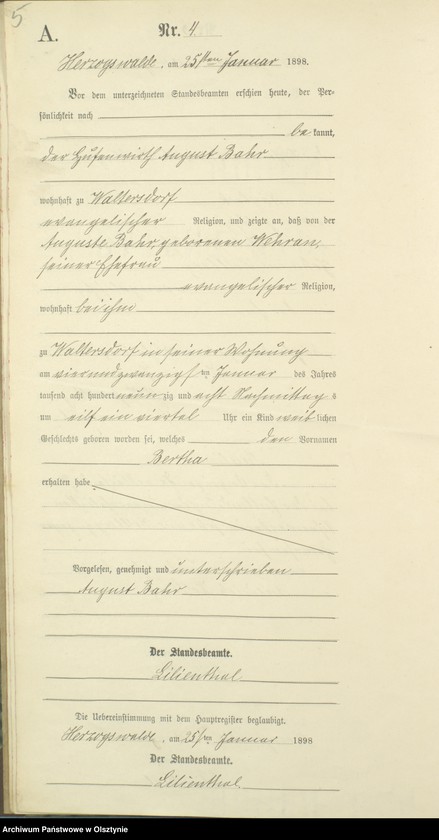 5
A.
Nr. 4
Herzogswalde, am 25sten Januar 1898.
Vor dem unterzeichneten Standesbeamten erschien heute, der Per-
sönlichkeit nach
be kannt,
der Hufenwirth August Bahr
wohnhaft zu Waltersdorf
evangelischer Religion, und zeigte an, daß von der
Auguste Bahr, geborenen Wehran,
seiner Ehefrau
evangelischer Religion,
wohnhaft bei ihm
zu Waltersdorf in seiner Wohnung
am vierundzwanzigsten Januar des Jahres
tausend acht hundert neunzig und acht Nachmittags
um elf ein viertel Uhr ein Kind weiblichen
Geschlechts geboren worden sei, welches den Vornamen
Bertha
erhalten habe
Vorgelesen, genehmigt und unterschrieben
August Bahr
Der Standesbeamte.
Lilienthal
Die Uebereinstimmung mit dem Hauptregister beglaubigt.
Herzogswalde, am 25sten Januar 1898
Der Standesbeamte.
Lilienthal.
Archiwum Państwowe w Olsztynie